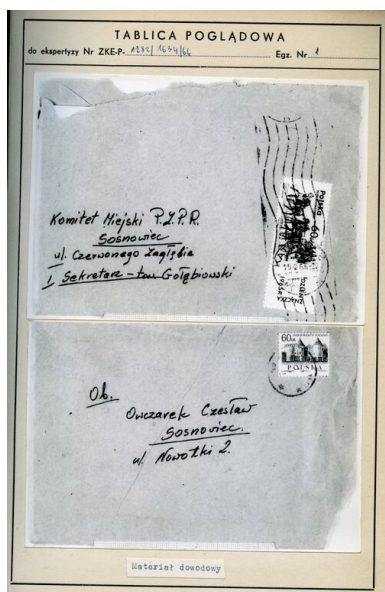 TABLICA POGLĄDOWA
do ekspertyzy Nr ZKE-P- 1282/1634/66 Egz. Nr 1
Komitet Miejski P.Z.P.R.
Sosnowiec
ul. Czerwonego Zagłębia
I Sekretarz - tow. Gołębiowski
POLSKA 60
ZNACZKA
60
POLSKA
Ob.
Owczarek Czesław
Sosnowiec.
ul. Nowotki 2.
Materiał dowodowy